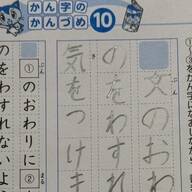 かん字の
かんづめ 10
文のおわ
のをわすれ
気をつけま
1のおわりに2
のをわすれないよう